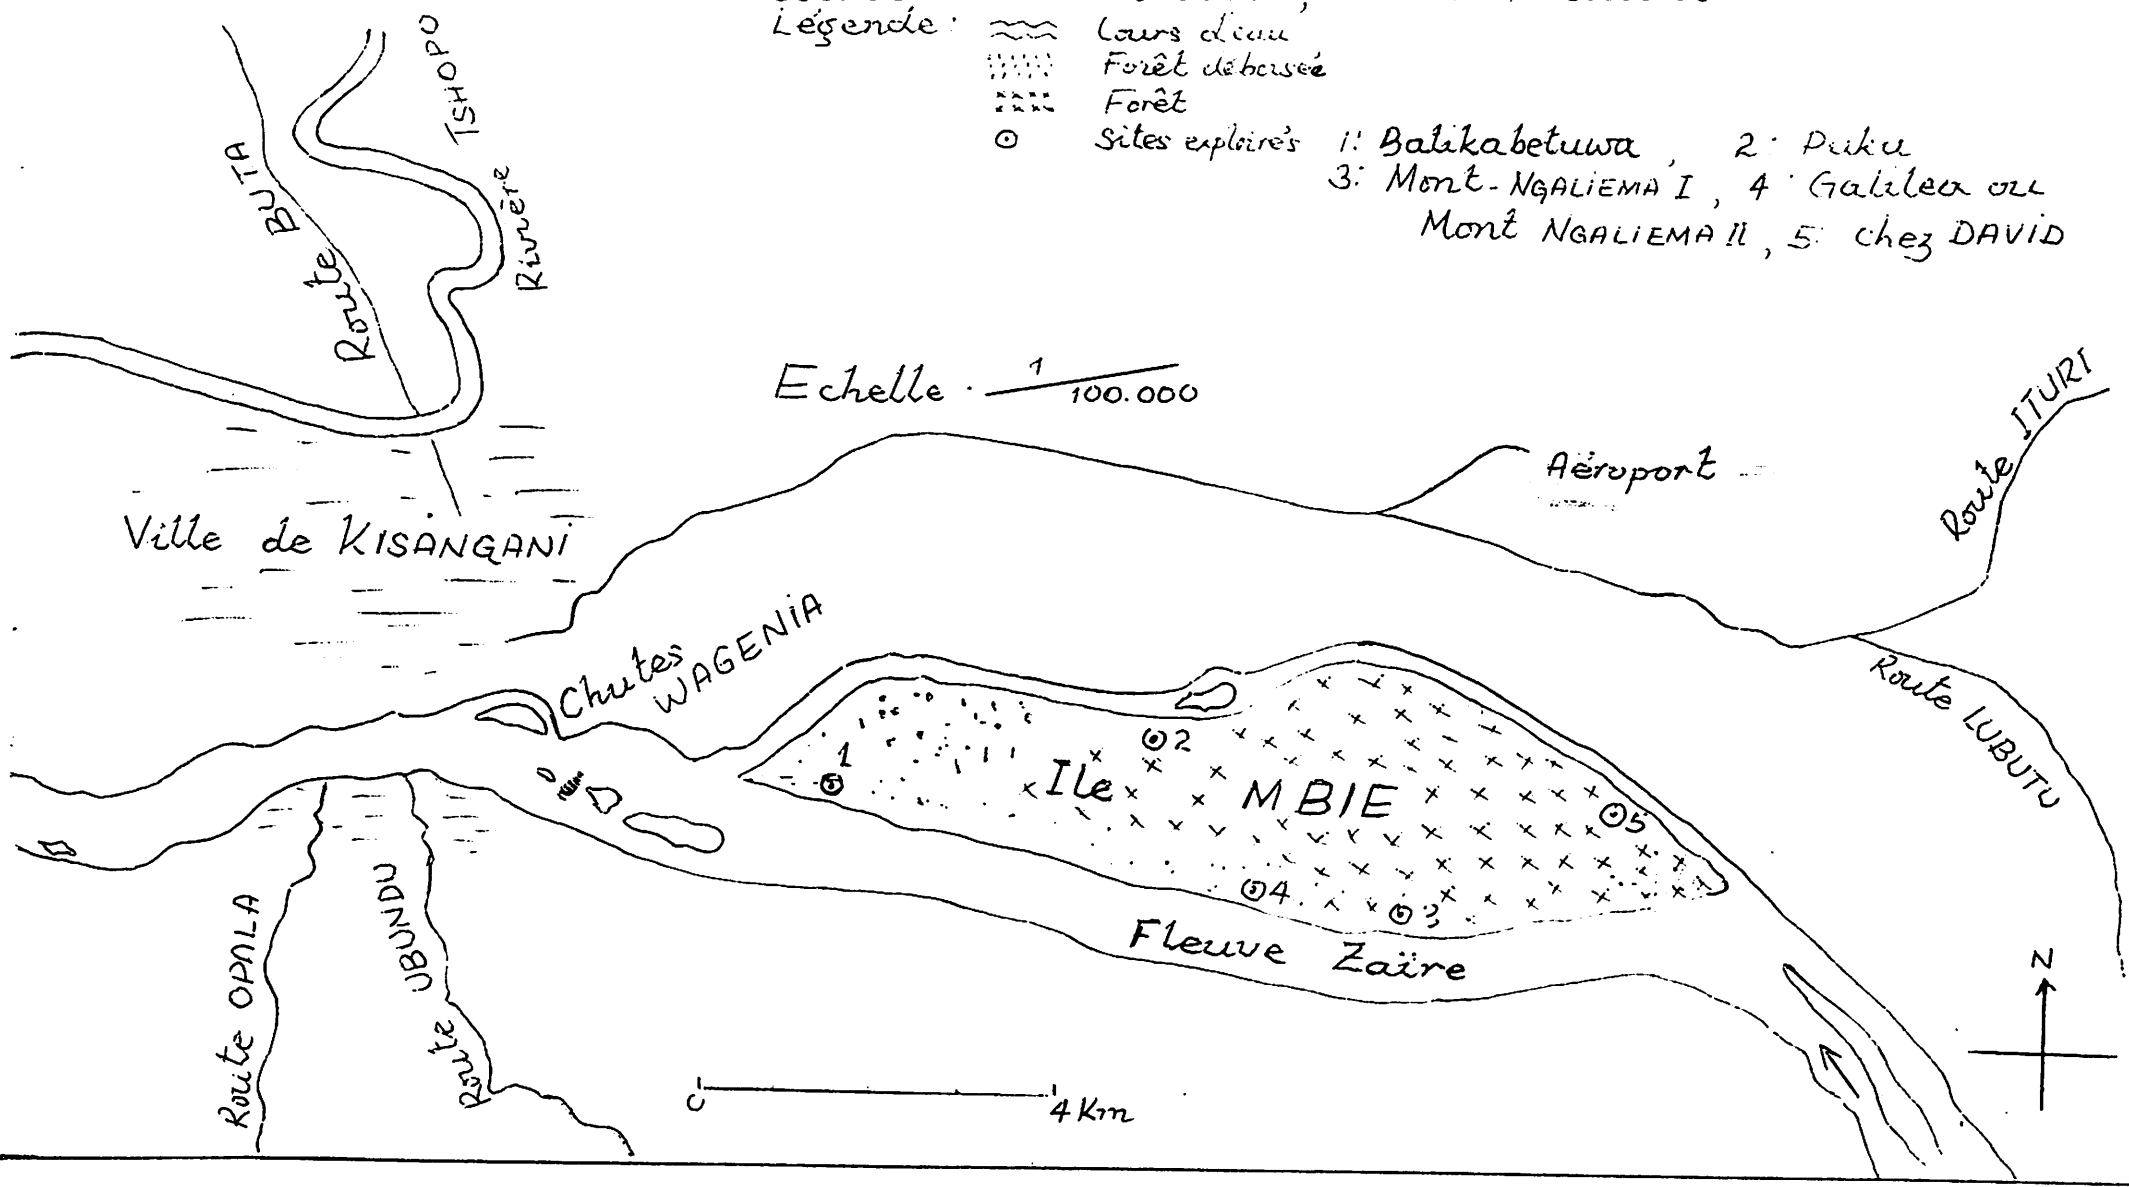 Légende:
Cours d'eau
Forêt déboisée
Forêt
Sites explorés 1: Balikabetuwa, 2: Puku
3: Mont-NGALIEMA I, 4: Galilea ou
Mont NGALIEMA II, 5: chez DAVID
Route BUTA
Rivière TSHOPO
Echelle. 1/100.000
Aéroport
Route ITURI
Ville de KISANGANI
Chutes
WAGENIA
Route LUBUTU
1
2
Ile MBIE
5
4
3
Fleuve Zaïre
Route OPALA
Route UBUNDU
N
0
4 Km